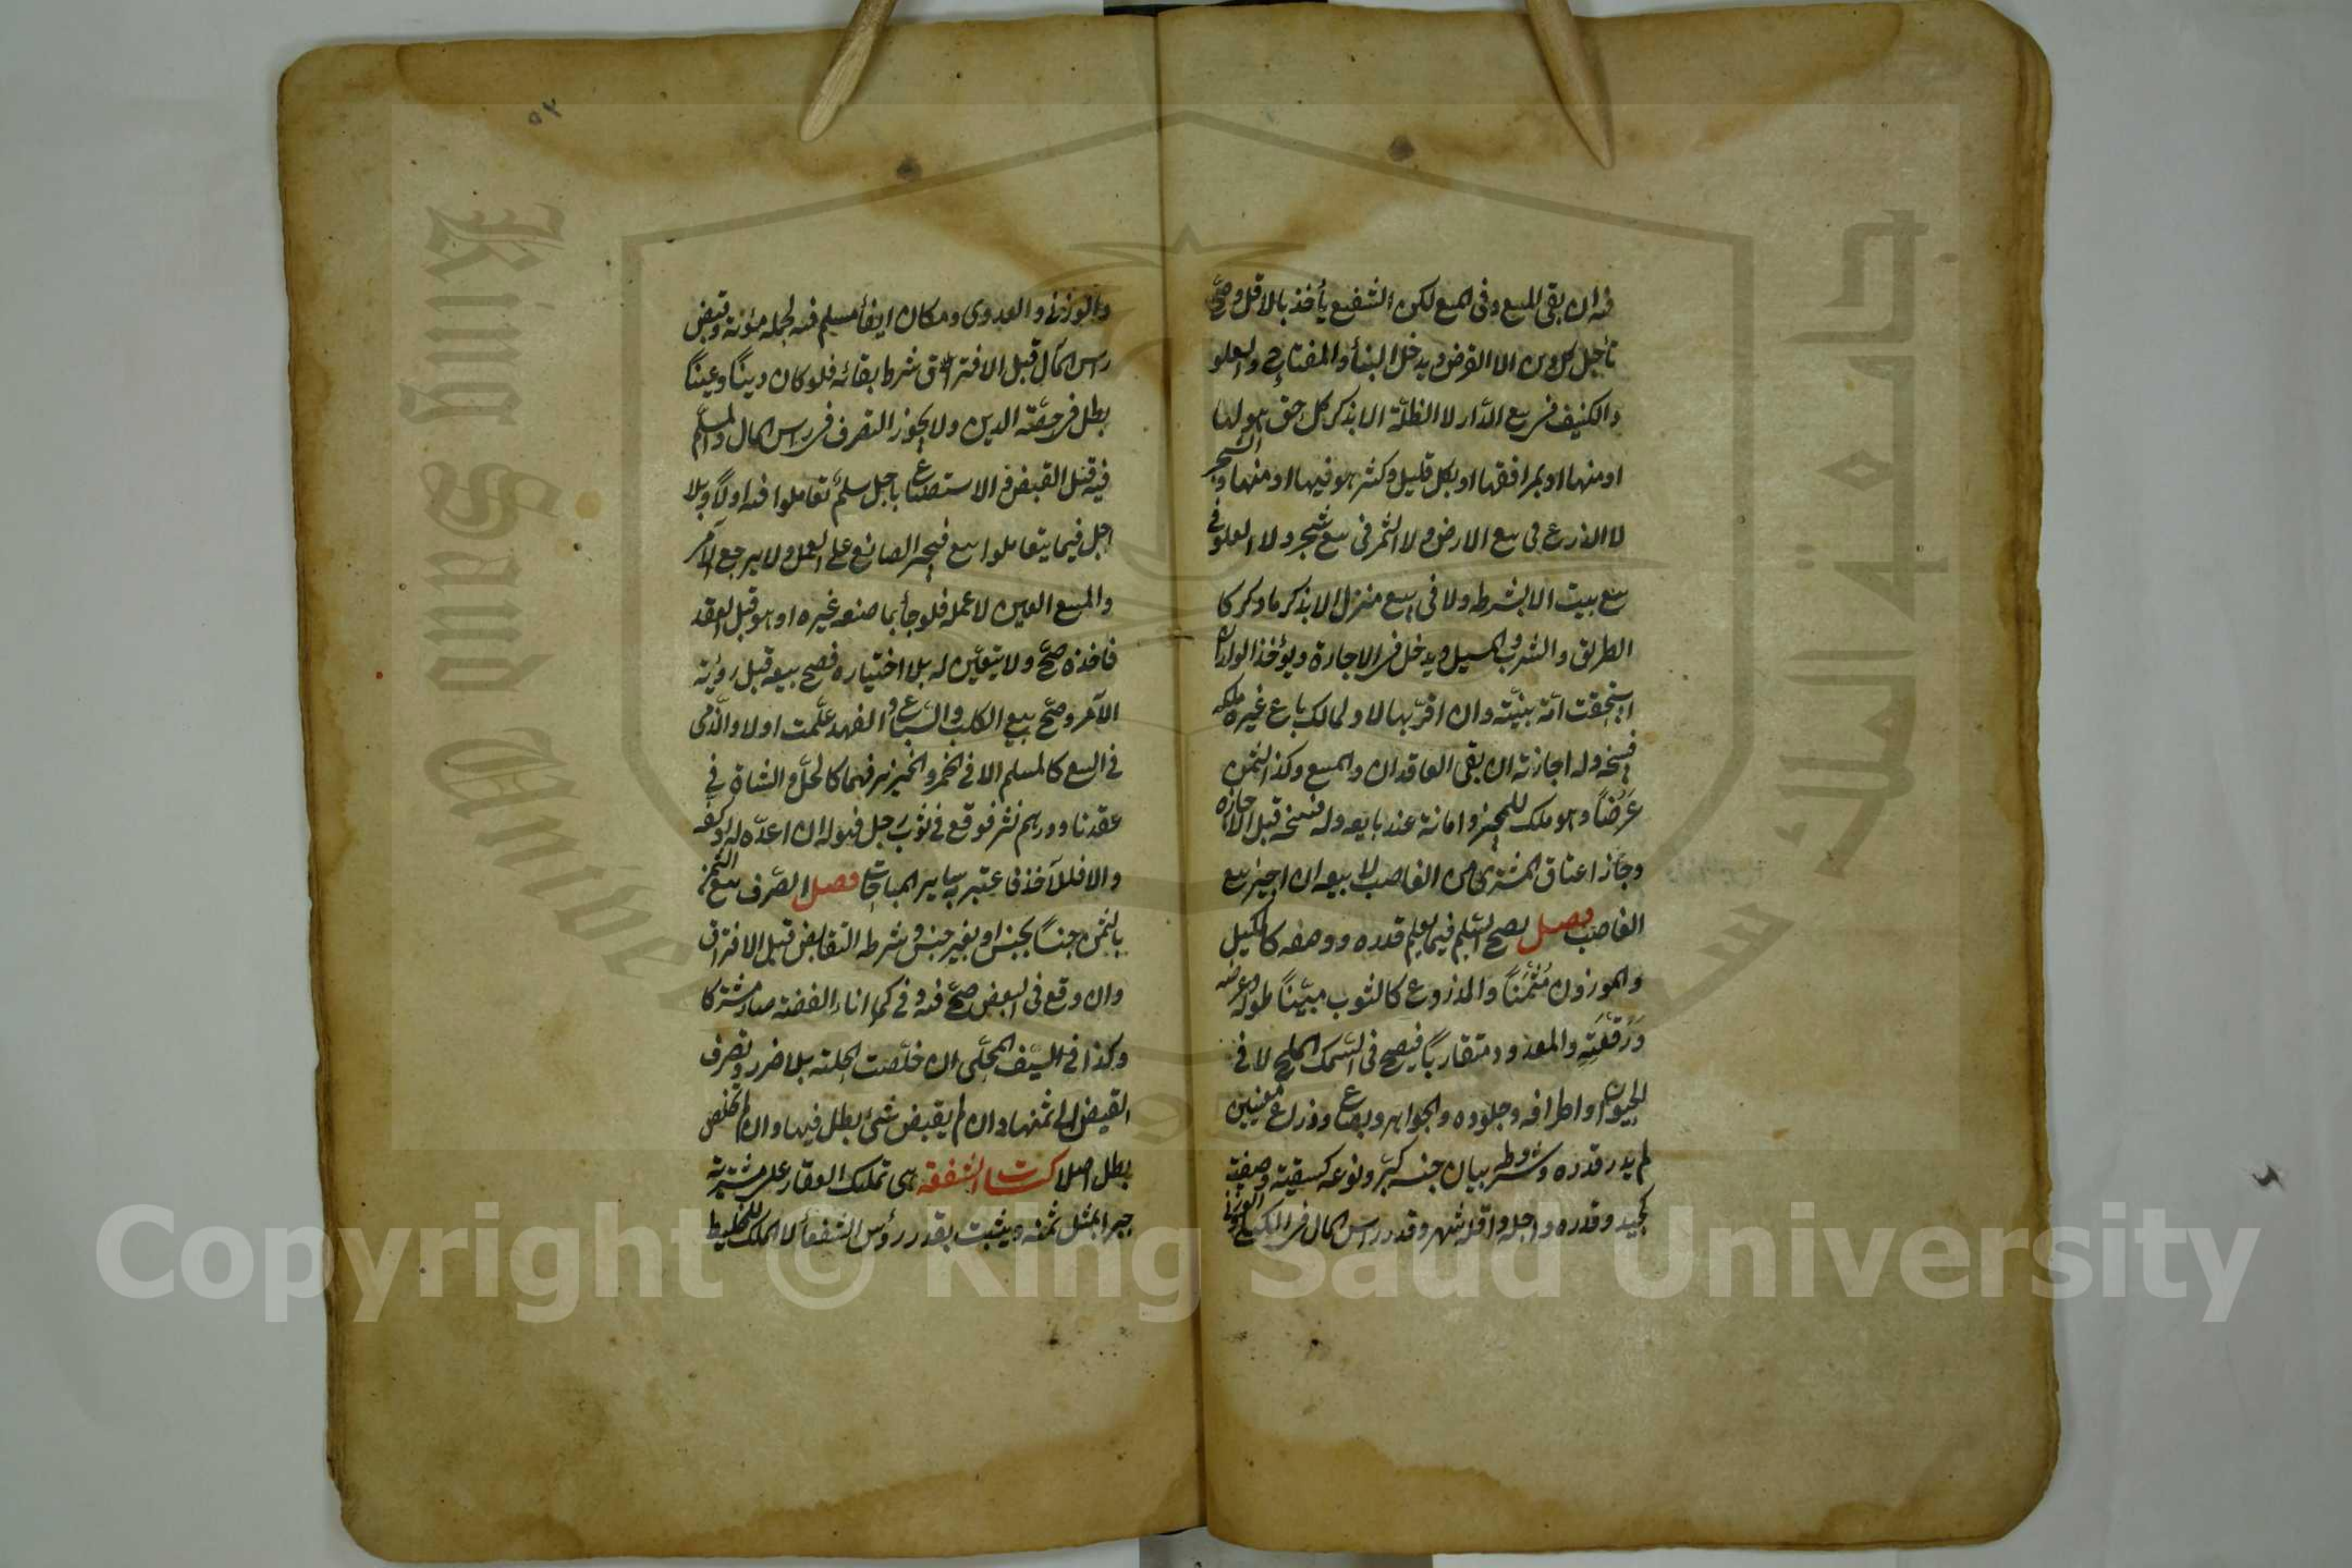 فيه ان بقى المبيع وفى المبيع لكن الشفيع يأخذ بالاقل وصح
تأجيل كل دين الا القرض ويدخل البنأ والمفتاح والعلو
والكنيف فى بيع الدار لا الظلة الا بذكر كل حق هو لها
او منها او بمرافقها او بكل قليل وكثير هو فيها او منها والشجر
لا الزرع فى بيع الارض ولا الثمر فى بيع شجر ولا العلو فى
بيع بيت الا بشرطه ولا فى بيع منزل الا بذكر ما ذكر كا
الطريق والشرب والمسيل ويدخل فى الاجارة ويؤخذ الولد ان
استحقت امة ببينة وان اقر بها لا ولمالك باع غيره ملكه
فسخه وله اجازته ان بقى العاقدان والمبيع وكذا الثمن
عرضاً وهو ملك للمجيز وامانة عند بايعه وله فسخه قبل الاجازة
وجاز اعتاق المشترى من الغاصب لا بيعه ان اجيز بيع
الغاصب فصل يصح السلم فيما يعلم قدره ووصفه كالمكيل
والموزون مثمناً والمذروع كالثوب مبيناً طوله وعرضه
ورقعته والمعدود متقارباً فيصح فى السمك المليح لا فى
الحيوان واطرافه وجلوده والجواهر وبصاع وذراع معينين
لم يدر قدره وشروطه بيان جنسه كبر ونوعه كسقية وصفته
كجيد وقدره واجله واقله شهر وقدر راس المال فى المكيلى
والوزنى والعددى ومكان ايفأ مسلم فيه لحمله مئونة وقبض
راس المال قبل الافتراق شرط بقائه فلو كان ديناً وعيناً
بطل فى حصة الدين ولا يجوز التصرف فى راس المال والمسلم
فيه قبل القبض والاستصناع باجل سلم تعاملوا فيه اولا وبلا
اجل فيما يتعاملوا بيع فيجبر الصانع على العمل ولا يرجع الآمر
والمبيع العين لا عمله فلو جأ بما صنعه غيره او هو قبل العقد
فاخذه صح ولا يتعين له بلا اختياره فصح بيعه قبل رؤية
الآمر وصح بيع الكلب والسباع والفهد علمت اولا والذمى
فى البيع كالمسلم الا فى الخمر والخنزير فهما كالخل والشاة فى
عقدنا ودرهم نثر فوقع فى ثوب رجل فهو له ان اعده له او كفه
والا فللآخذ فاعتبر بساير المباحات فصل الصرف بيع الثمن
بالثمن جنساً بجنس او بغير جنس وشرطه التقابض قبل الافتراق
وان وقع فى البعض صح فيه وفى كما اناء الفضة صار مشتركا
وكذا فى السيف المحلى ان خلصت الحلية بلا ضرر وتصرف
القبض الى ثمنها وان لم يقبض شئ بطل فيها وان لم تخلص
بطل اصلا كتاب الشفعة هى تملك العقار على مشتريه
جبرا بمثل ثمنه ويثبت بقدر رؤس الشفعأ لا الملك للخليط